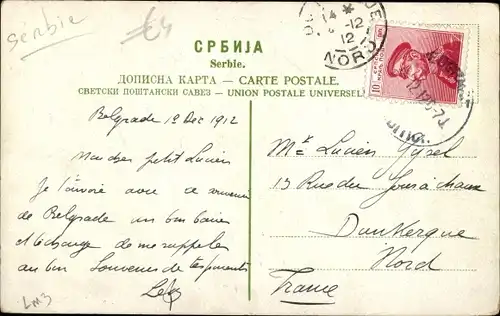 Sérbie
£4
СРБИЈА
Serbie.
ДОПИСНА КАРТА — CARTE POSTALE.
СВЕТСКИ ПОШТАНСКИ САВЕЗ — UNION POSTALE UNIVERSEL
14 * -12
12
NORD
10
Belgrade 1º Dec 1912
Mon cher petit Lucien
Je t'envoie avec ce souvenir
de Belgrade un bon baiser
et te charge de me rappeler
au bon souvenir de tes parents
Mr Lucien Gysel
13 Rue du Jeu à
Dunkerque
Nord
France
LM3